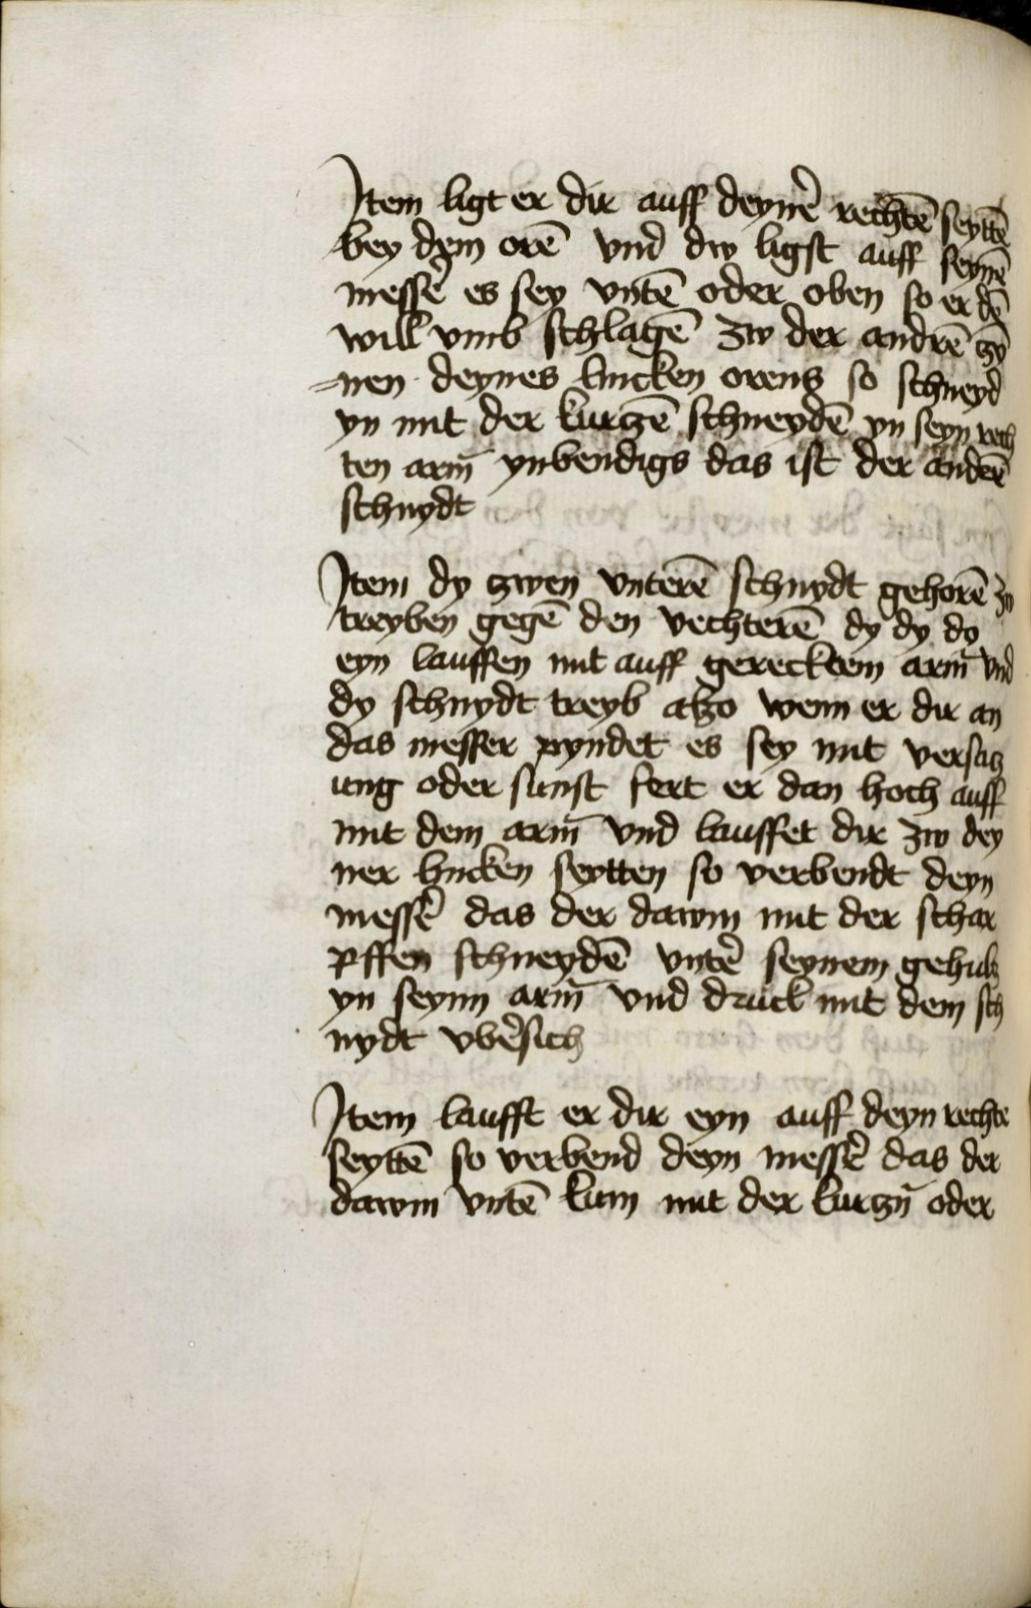 Item ligt er dir auff deynẽ rechtẽ seyttẽ
bey dem orẽ vnd dw ligst auff seynẽ
messẽ es sey vntẽ oder oben so er dẽ
will vmb schlagẽ zw der andrẽ
nen deynes lincken orens so schneyd
yn mit der kurczẽ schneydẽ yn seyn rech
ten arm̃ ynbendigs das ist der anderẽ
schnydt
Item dy zwen vnterẽ schnydt gehorẽ zw
treyben gegẽ den vechterẽ dy dy do
eyn lauffen mit auff gerecktem arm̃ vnd
dy schnydt treyb alzo wenn er dir an
das messer pyndet es sey mit versacz
ung oder sunst fert er dan hoch auff
mit dem arm̃ vnd lauffet dir zw dey
ner lincken seytten so verbendt deyn
messẽ das der dawm mit der schar
pffen schneydẽ vntẽ seynem gehulcz
yn seynn arm̃ vnd druck mit dem sch
nydt vbẽsich
Item laufft er dir eyn auff deyn rechte
seyttẽ so verbend deyn messẽ das der
dawm vntẽ kum mit der kurczñ oder